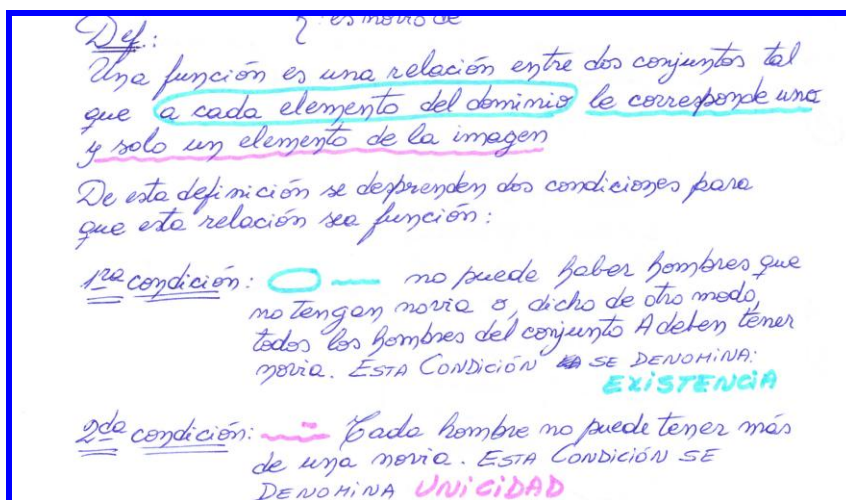 Def.:
es novio de
Una función es una relación entre dos conjuntos tal
que a cada elemento del dominio le corresponde uno
y solo un elemento de la imagen
De esta definición se desprenden dos condiciones para
que esta relación sea función:
1ra condición: no puede haber hombres que
no tengan novia o, dicho de otro modo,
todos los hombres del conjunto A deben tener
novia. ESTA CONDICIÓN SE DENOMINA:
EXISTENCIA
2da condición: Cada hombre no puede tener más
de una novia. ESTA CONDICIÓN SE
DENOMINA UNICIDAD